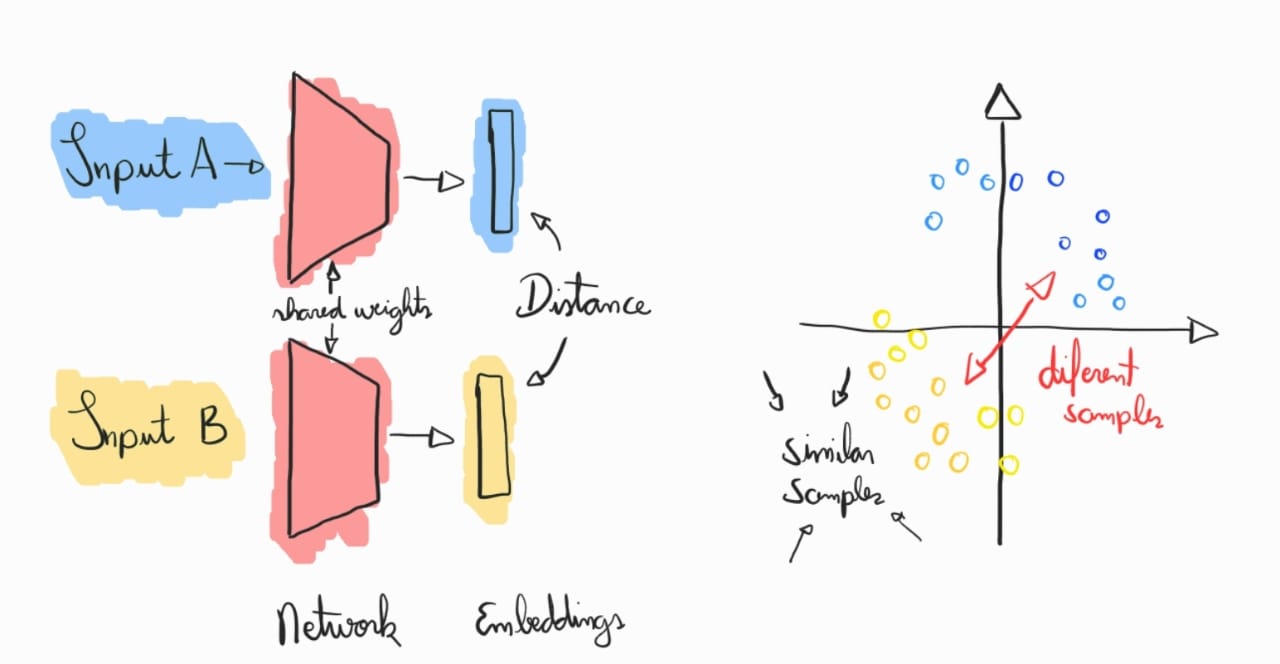 Input A
shared weights
Distance
Input B
Network
Embeddings
diferent
samples
similar
samples